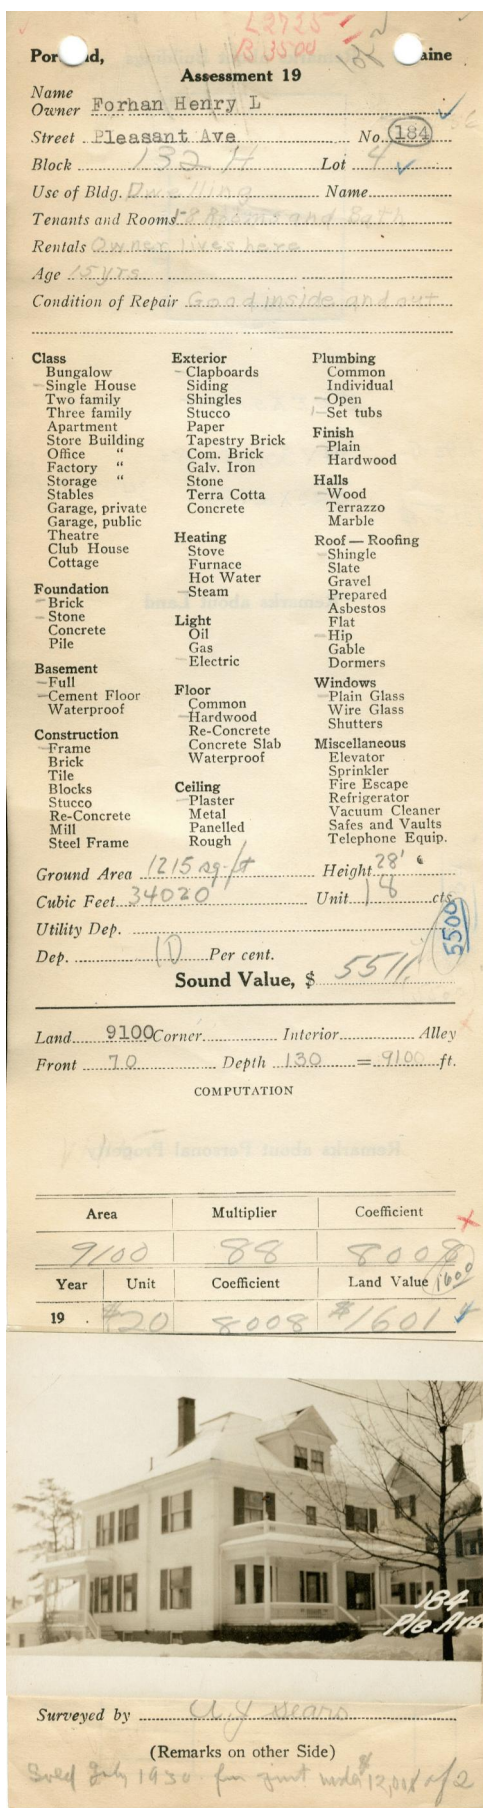 L2725
B 3500
1 of 2
Por nd, aine
Assessment 19
Name
Owner Forhan Henry L
Street Pleasant Ave No. 184
Block 132 H Lot 4
Use of Bldg. Dwelling Name
Tenants and Rooms 1-8 Rooms and Bath
Rentals Owner lives here
Age 15 yrs
Condition of Repair Good inside and out
Class
Bungalow
Single House
Two family
Three family
Apartment
Store Building
Office "
Factory "
Storage "
Stables
Garage, private
Garage, public
Theatre
Club House
Cottage
Foundation
Brick
Stone
Concrete
Pile
Basement
Full
Cement Floor
Waterproof
Construction
Frame
Brick
Tile
Blocks
Stucco
Re-Concrete
Mill
Steel Frame
Exterior
Clapboards
Siding
Shingles
Stucco
Paper
Tapestry Brick
Com. Brick
Galv. Iron
Stone
Terra Cotta
Concrete
Heating
Stove
Furnace
Hot Water
Steam
Light
Oil
Gas
Electric
Floor
Common
Hardwood
Re-Concrete
Concrete Slab
Waterproof
Ceiling
Plaster
Metal
Panelled
Rough
Plumbing
Common
Individual
Open
1 Set tubs
Finish
Plain
Hardwood
Halls
Wood
Terrazzo
Marble
Roof — Roofing
Shingle
Slate
Gravel
Prepared
Asbestos
Flat
Hip
Gable
Dormers
Windows
Plain Glass
Wire Glass
Shutters
Miscellaneous
Elevator
Sprinkler
Fire Escape
Refrigerator
Vacuum Cleaner
Safes and Vaults
Telephone Equip.
Ground Area 1215 sq. ft Height 28'
Cubic Feet 34020 Unit 18 cts
Utility Dep.
5500
Dep. 10 Per cent.
Sound Value, $ 5511
Land 9100 Corner Interior Alley
Front 70 Depth 130 = 9100 ft.
COMPUTATION
Area Multiplier Coefficient
9100 88 8008
Year Unit Coefficient Land Value 1600
19 . $20 8008 $1601
184
Ple Ave
Surveyed by A J Sears
(Remarks on other Side)
July 1930 for just under $12,000 of 2